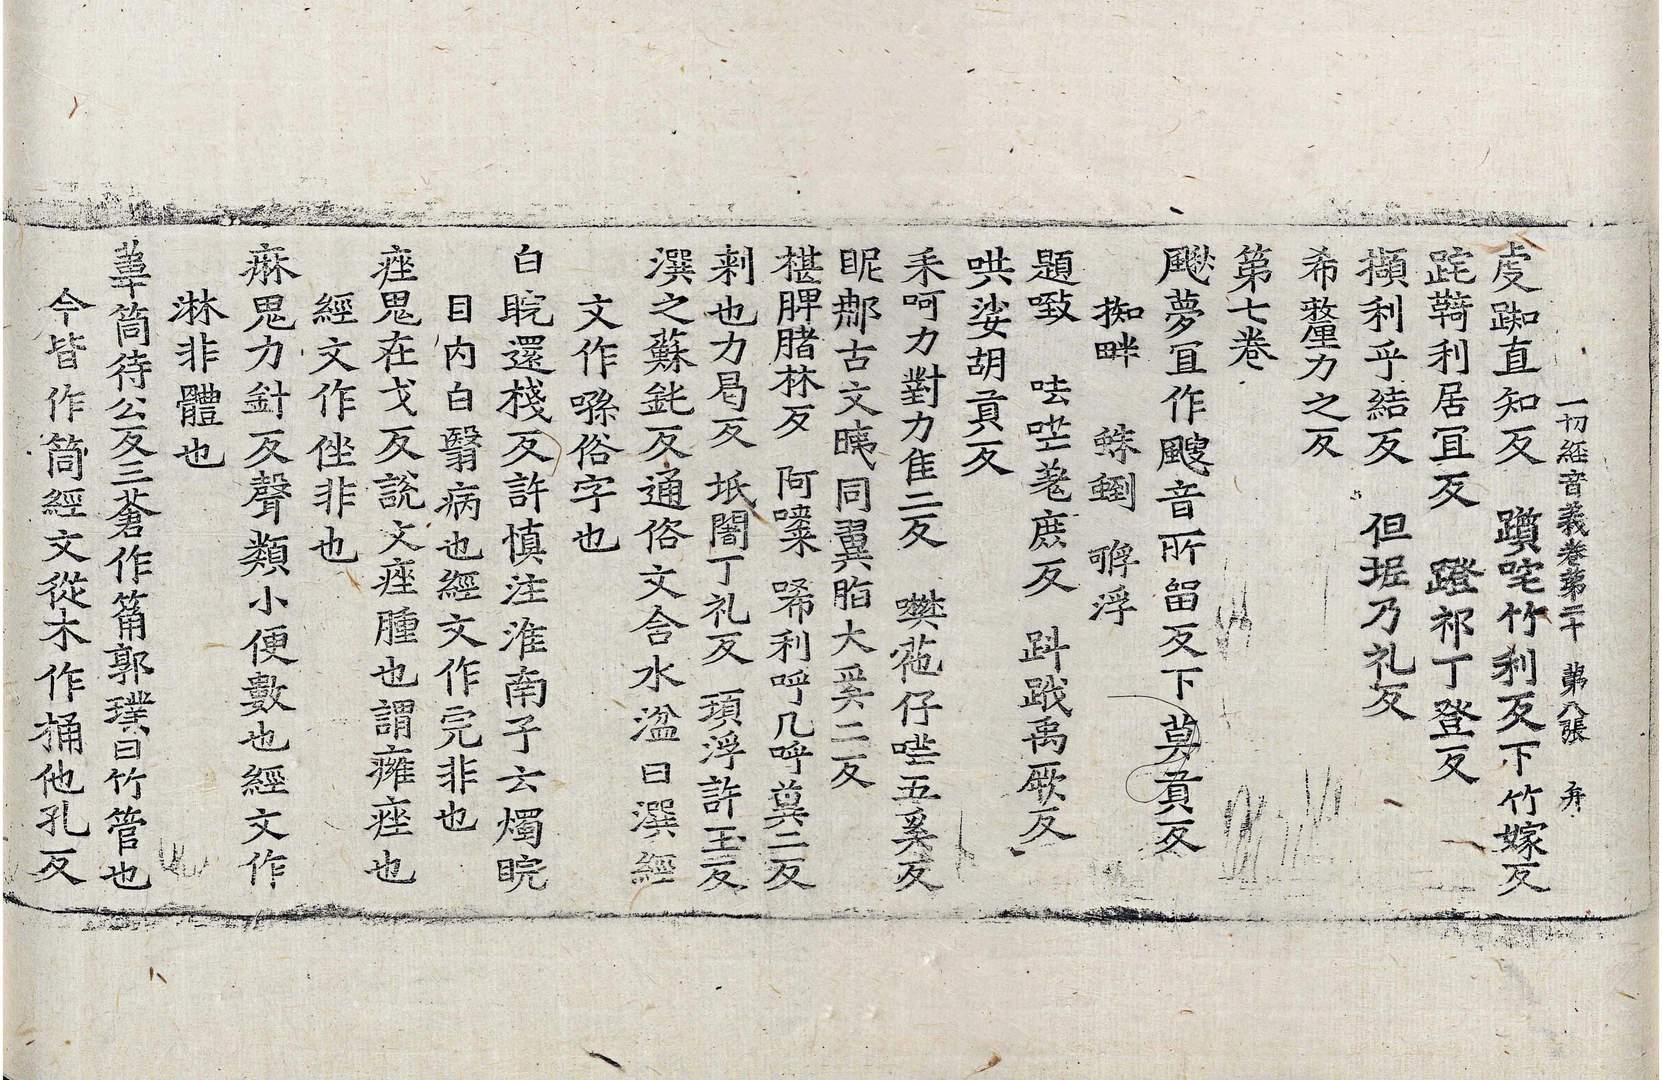 一切經音義卷第二十 第八張 弁
虔踟直知反 躓咤竹利反下竹嫁反
跎鞊利居冝反 蹬祁丁登反
擷利乎結反 但坭乃礼反
希𨤲力之反
第七卷
夢冝作颼音所留反下莫貢反
畔 蛛蛚 浮
題 呿䓾庶反 䟴禹厥反
哄娑胡貢反
耒呵力對力隹二反 樊苞仔五奚反
眤䣌古文眱同翼脂大奚二反
椹脾賭林反 阿㗚 唏利呼几呼冀二反
剌也力曷反 坻闍丁礼反 頊浮許玉反
潠之蘇鈋反通俗文含水湓曰潠經
文作㗵俗字也
白睆還棧反許慎注淮南子云燭睆
目内白翳病也經文作完非也
痤鬼在戈反說文痤腫也謂癰痤也
經文作㘸非也
痳鬼力針反聲類小便數也經文作
淋非體也
葦筒待公反三蒼作筩郭璞曰竹管也
今皆作筒經文從木作桶他孔反